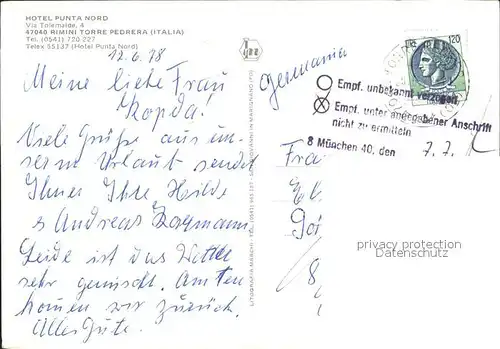 HOTEL PUNTA NORD
Via Tolemaide, 4
47040 RIMINI TORRE PEDRERA (ITALIA)
Tel. (0541) 720 227
Telex 55137 (Hotel Punta Nord)
12.6.78
Meine liebe Frau
Kopda!
Viele Grüße aus un-
serm Urlaubt sendet
Ihnen Ihre Hilde
& Andreas
Leide ist das Wetter
sehr gemischt. Am
komen wir zurück.
Alles Gute.
Germania
120
Empf. unbekannt verzogen
Empf. unter angegebener Anschrift
nicht zu ermitteln
8 München 40, den 7.7.
Fra
El
8
privacy protection
Datenschutz